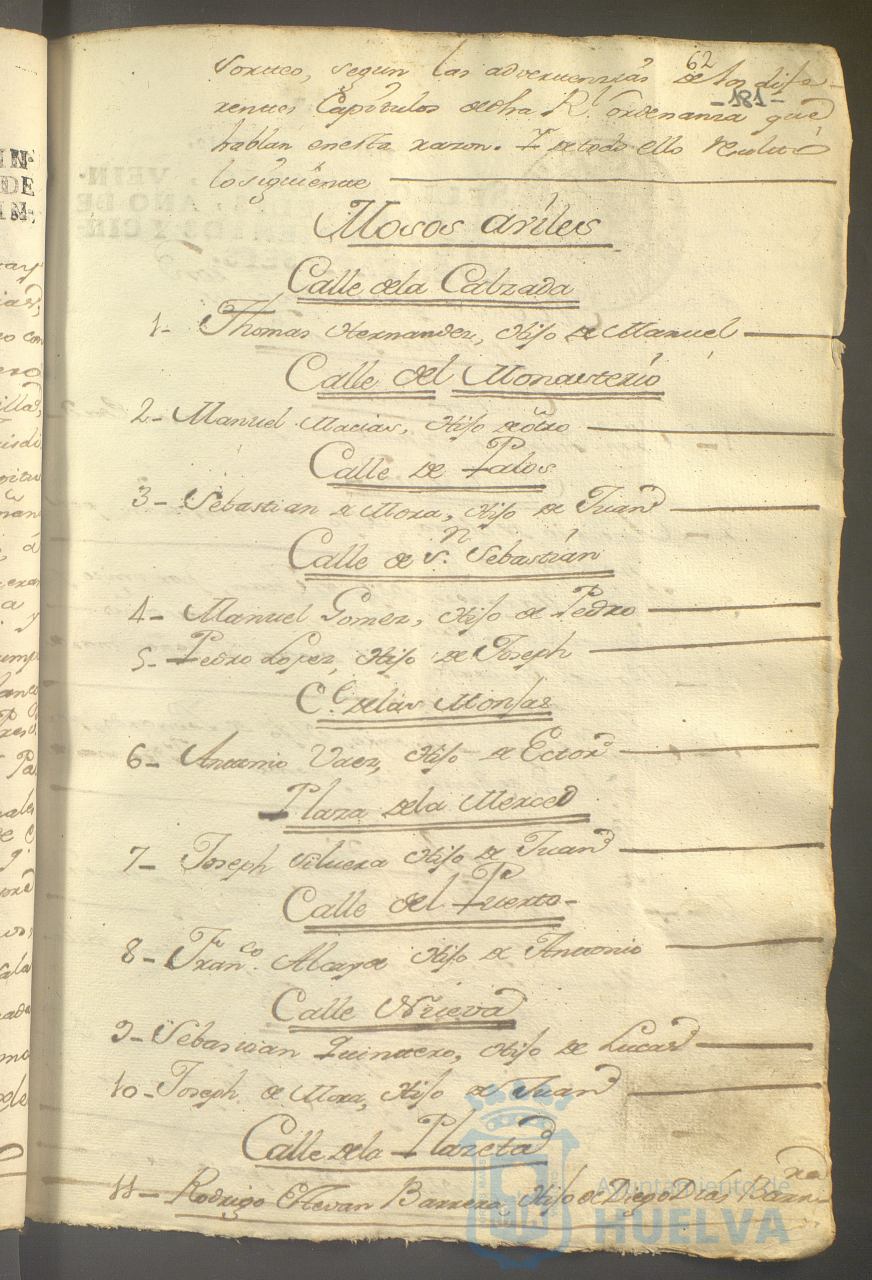 62
Sorteo, segun las advertenzias de los dife-
-181-
rentes Capitulos de dha Rl. ordenanza que
hablan en esta razon. Y de todo ello resulta
lo siguiente
Mosos aviles
Calle de la Calzada
1- Thomas Hernandez, Hijo de Manuel
Calle del Monasterio
2- Manuel Macias, Hijo de otro
Calle de Palos
3- Sebastian de Mora, Hijo de Juan
Calle de Sn. Sebastian
4- Manuel Gomez, Hijo de Pedro
5- Pedro Lopez, Hijo de Joseph
Ce. de las Monjas
6- Antonio Vaez, Hijo de Ector
Plaza de la Merced
7- Joseph Silvera Hijo de Juan
Calle del Puerto-
8- Franco. Hijo de Antonio
Calle Nueva
9- Sebastian Quintero, Hijo de Lucas
10- Joseph de Mora, Hijo de Juan
Calle de la Plazeta
11- Rodrigo Estevan Barrera, Hijo de Diego Dias Barrera
Ayuntamiento de
HUELVA